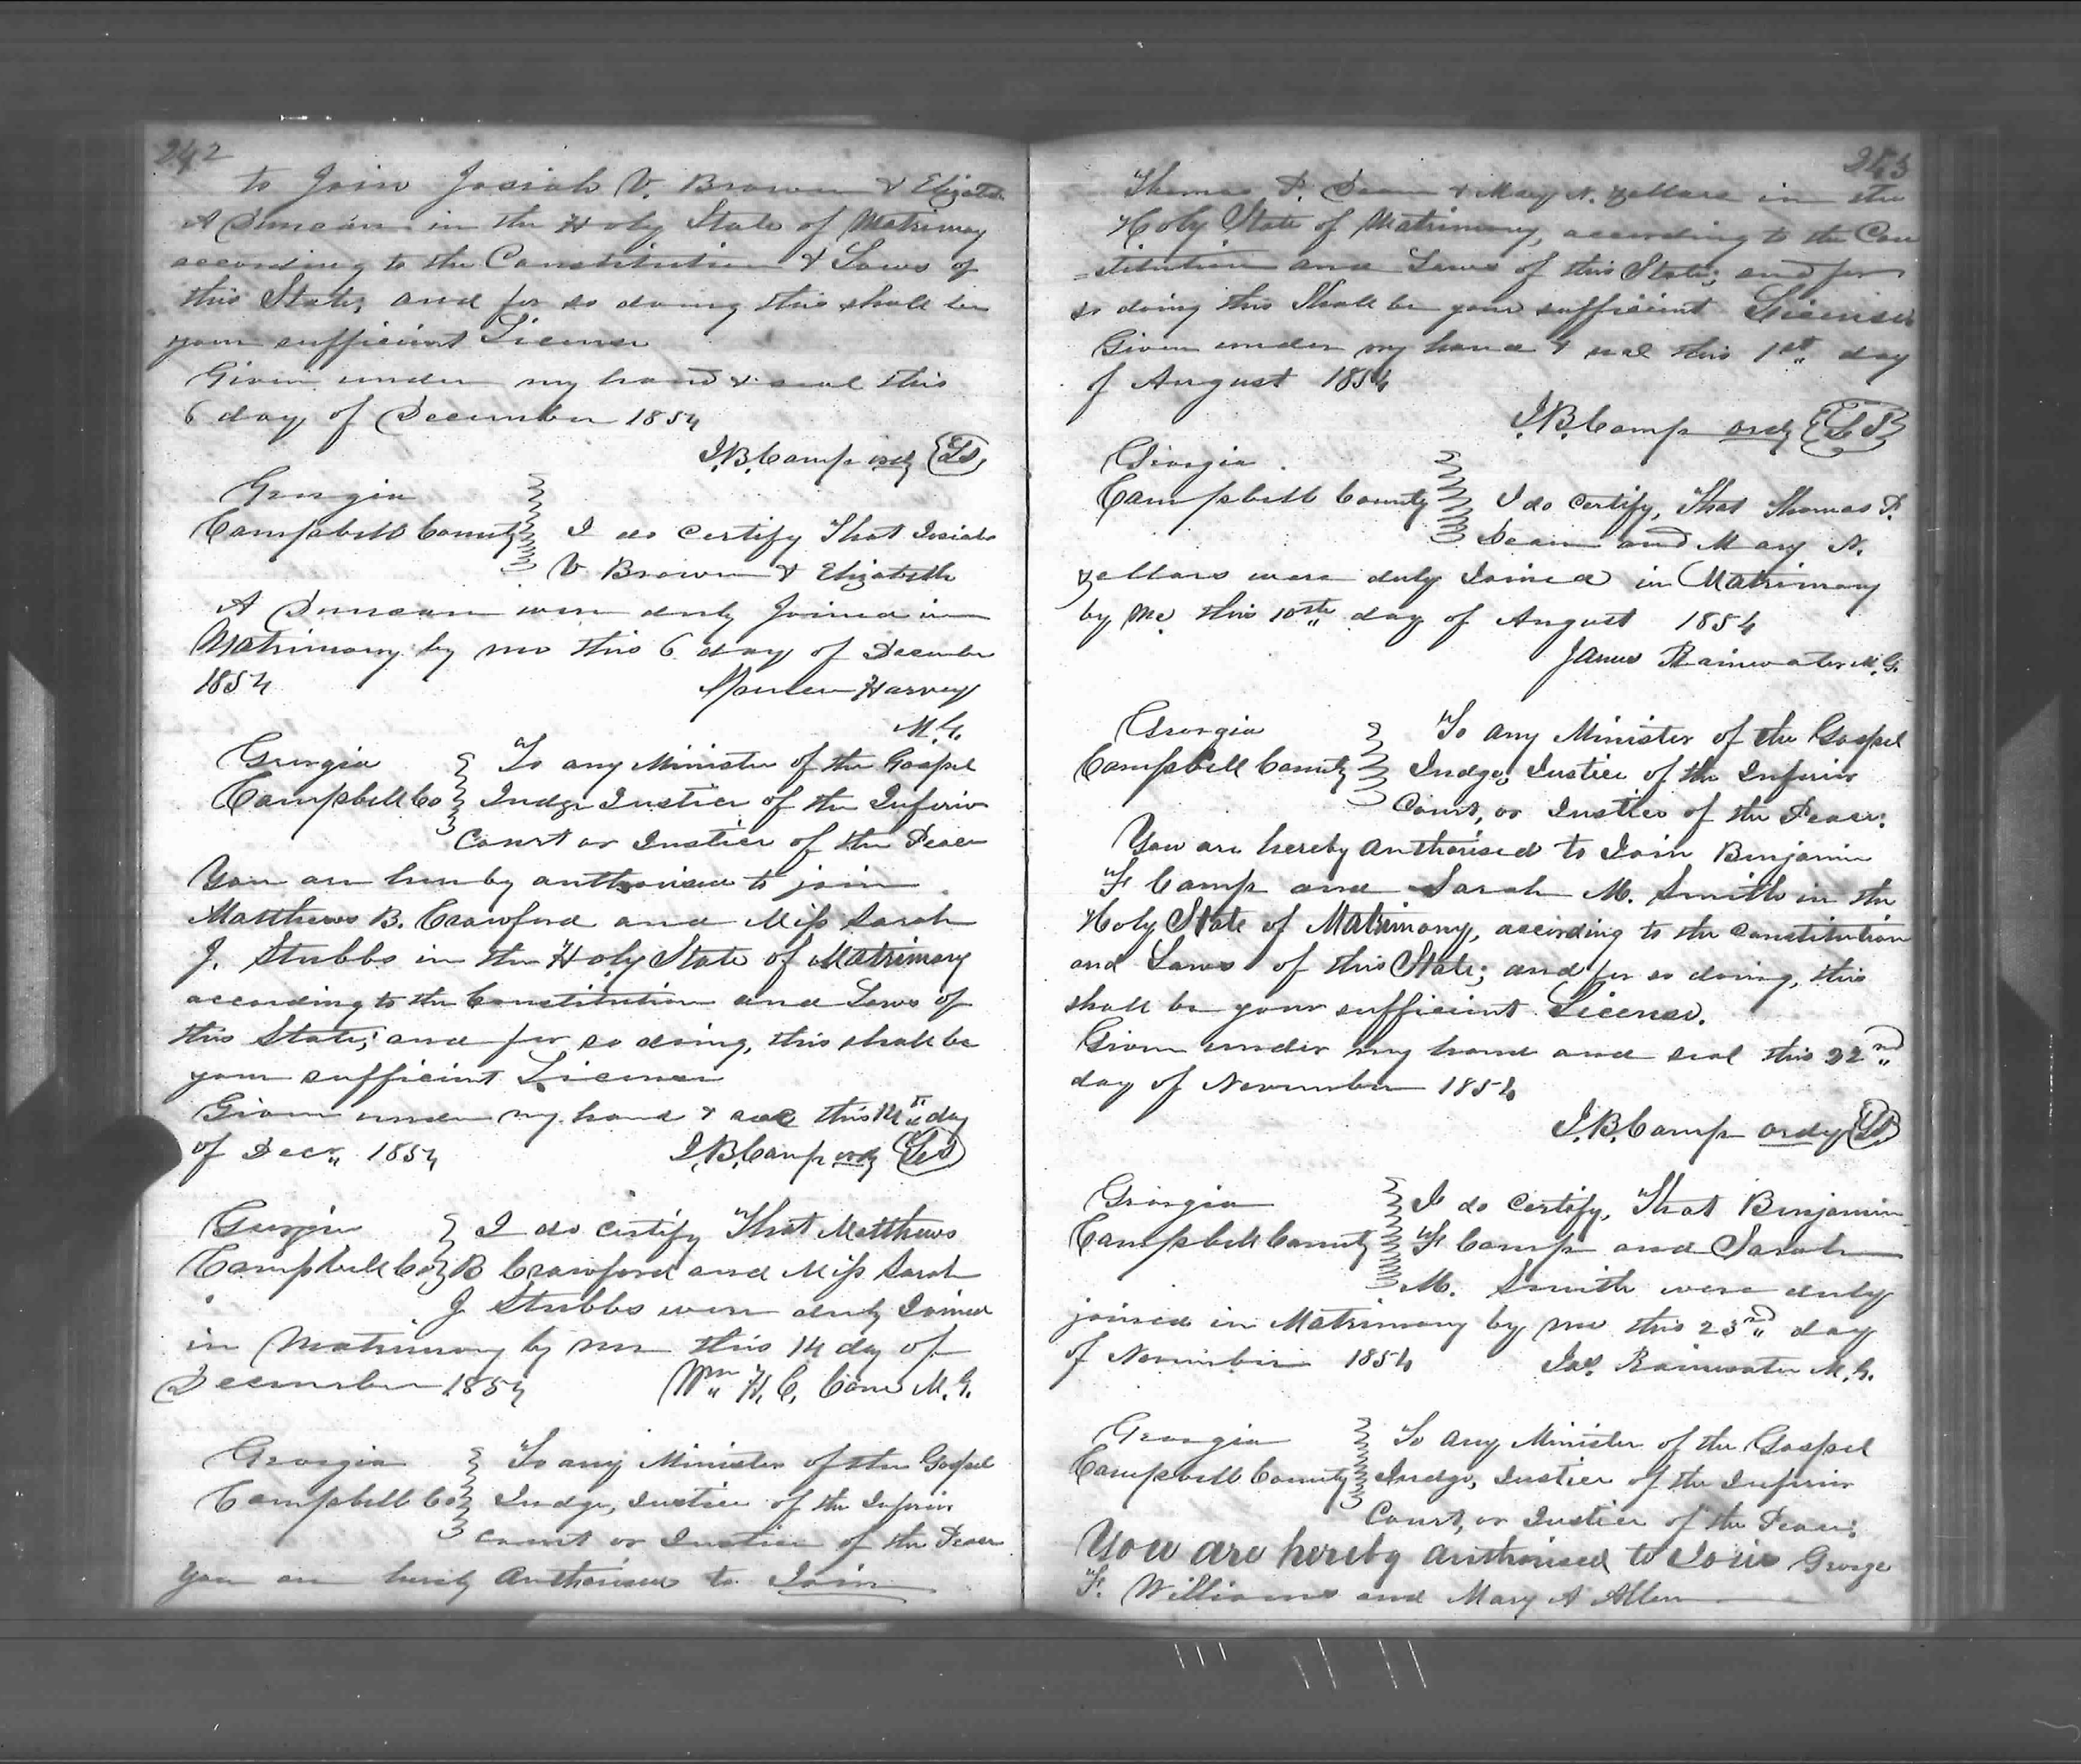 242
to Join Josiah V. Brown & Elizabeth
A Duncan in the Holy State of Matrimony
according to the Constitution & Laws of
this State; and for so doing this shall be
your sufficient License
Given under my hand & seal this
6 day of December 1854
J.B. Camp ordy LS
Georgia
Campbell County I do certify That Josiah
V Brown & Elizabeth
A Duncan were duly Joined in
Matrimony by me this 6 day of December
1854 Spencer Harvey
M.G.
Georgia To any Minister of the Gospel
Campbell Co Judge Justice of the Inferior
Court or Justice of the Peace
You are hereby authorised to join
Matthews B. Crawford and Miss Sarah
J. Stubbs in the Holy State of Matrimony
according to the Constitution and Laws of
this State; and for so doing, this shall be
your sufficient License
Given under my hand & seal this 14th day
of Decr 1854 J.B. Camp ordy LS
Georgia I do certify That Matthews
Campbell Co B Crawford and Miss Sarah
J Stubbs were duly Joined
in Matrimony by me this 14 day of
December 1854 Wm H. C. Cone M.G.
Georgia To any Minister of the Gospel
Campbell Co Judge, Justice of the Inferior
Court or Justice of the Peace
You are hereby Authorised to Join
243
Thomas P. Dean & Mary N. Zellars in the
Holy State of Matrimony, according to the Con
=stitution and Laws of this State; and for
so doing this Shall be your sufficient License
Given under my hand & seal this 1st day
of August 1854
J.B. Camp ordy LS
Georgia
Campbell County I do certify, That Thomas P.
Dean and Mary N.
Zellars were duly Joined in Matrimony
by Me this 10th day of August 1854
James Rainwater M.G.
Georgia To any Minister of the Gospel
Campbell County Judge, Justice of the Inferior
Court, or Justice of the Peace:
You are hereby authorised to Join Benjamin
F Camp and Sarah M. Smith in the
Holy State of Matrimony, according to the Constitution
and Laws of this State; and for so doing, this
shall be your sufficient License.
Given under my hand and seal this 22nd
day of November 1854
J.B. Camp ordy LS
Georgia I do certify, That Benjamin
Campbell County F Camp and Sarah
M. Smith were duly
joined in Matrimony by me this 23rd day
of November 1854 Jas. Rainwater M.G.
Georgia To any Minister of the Gospel
Campbell County Judge, Justice of the Inferior
Court, or Justice of the Peace:
You are hereby authorised to Join George
F. Williams and Mary A Allen